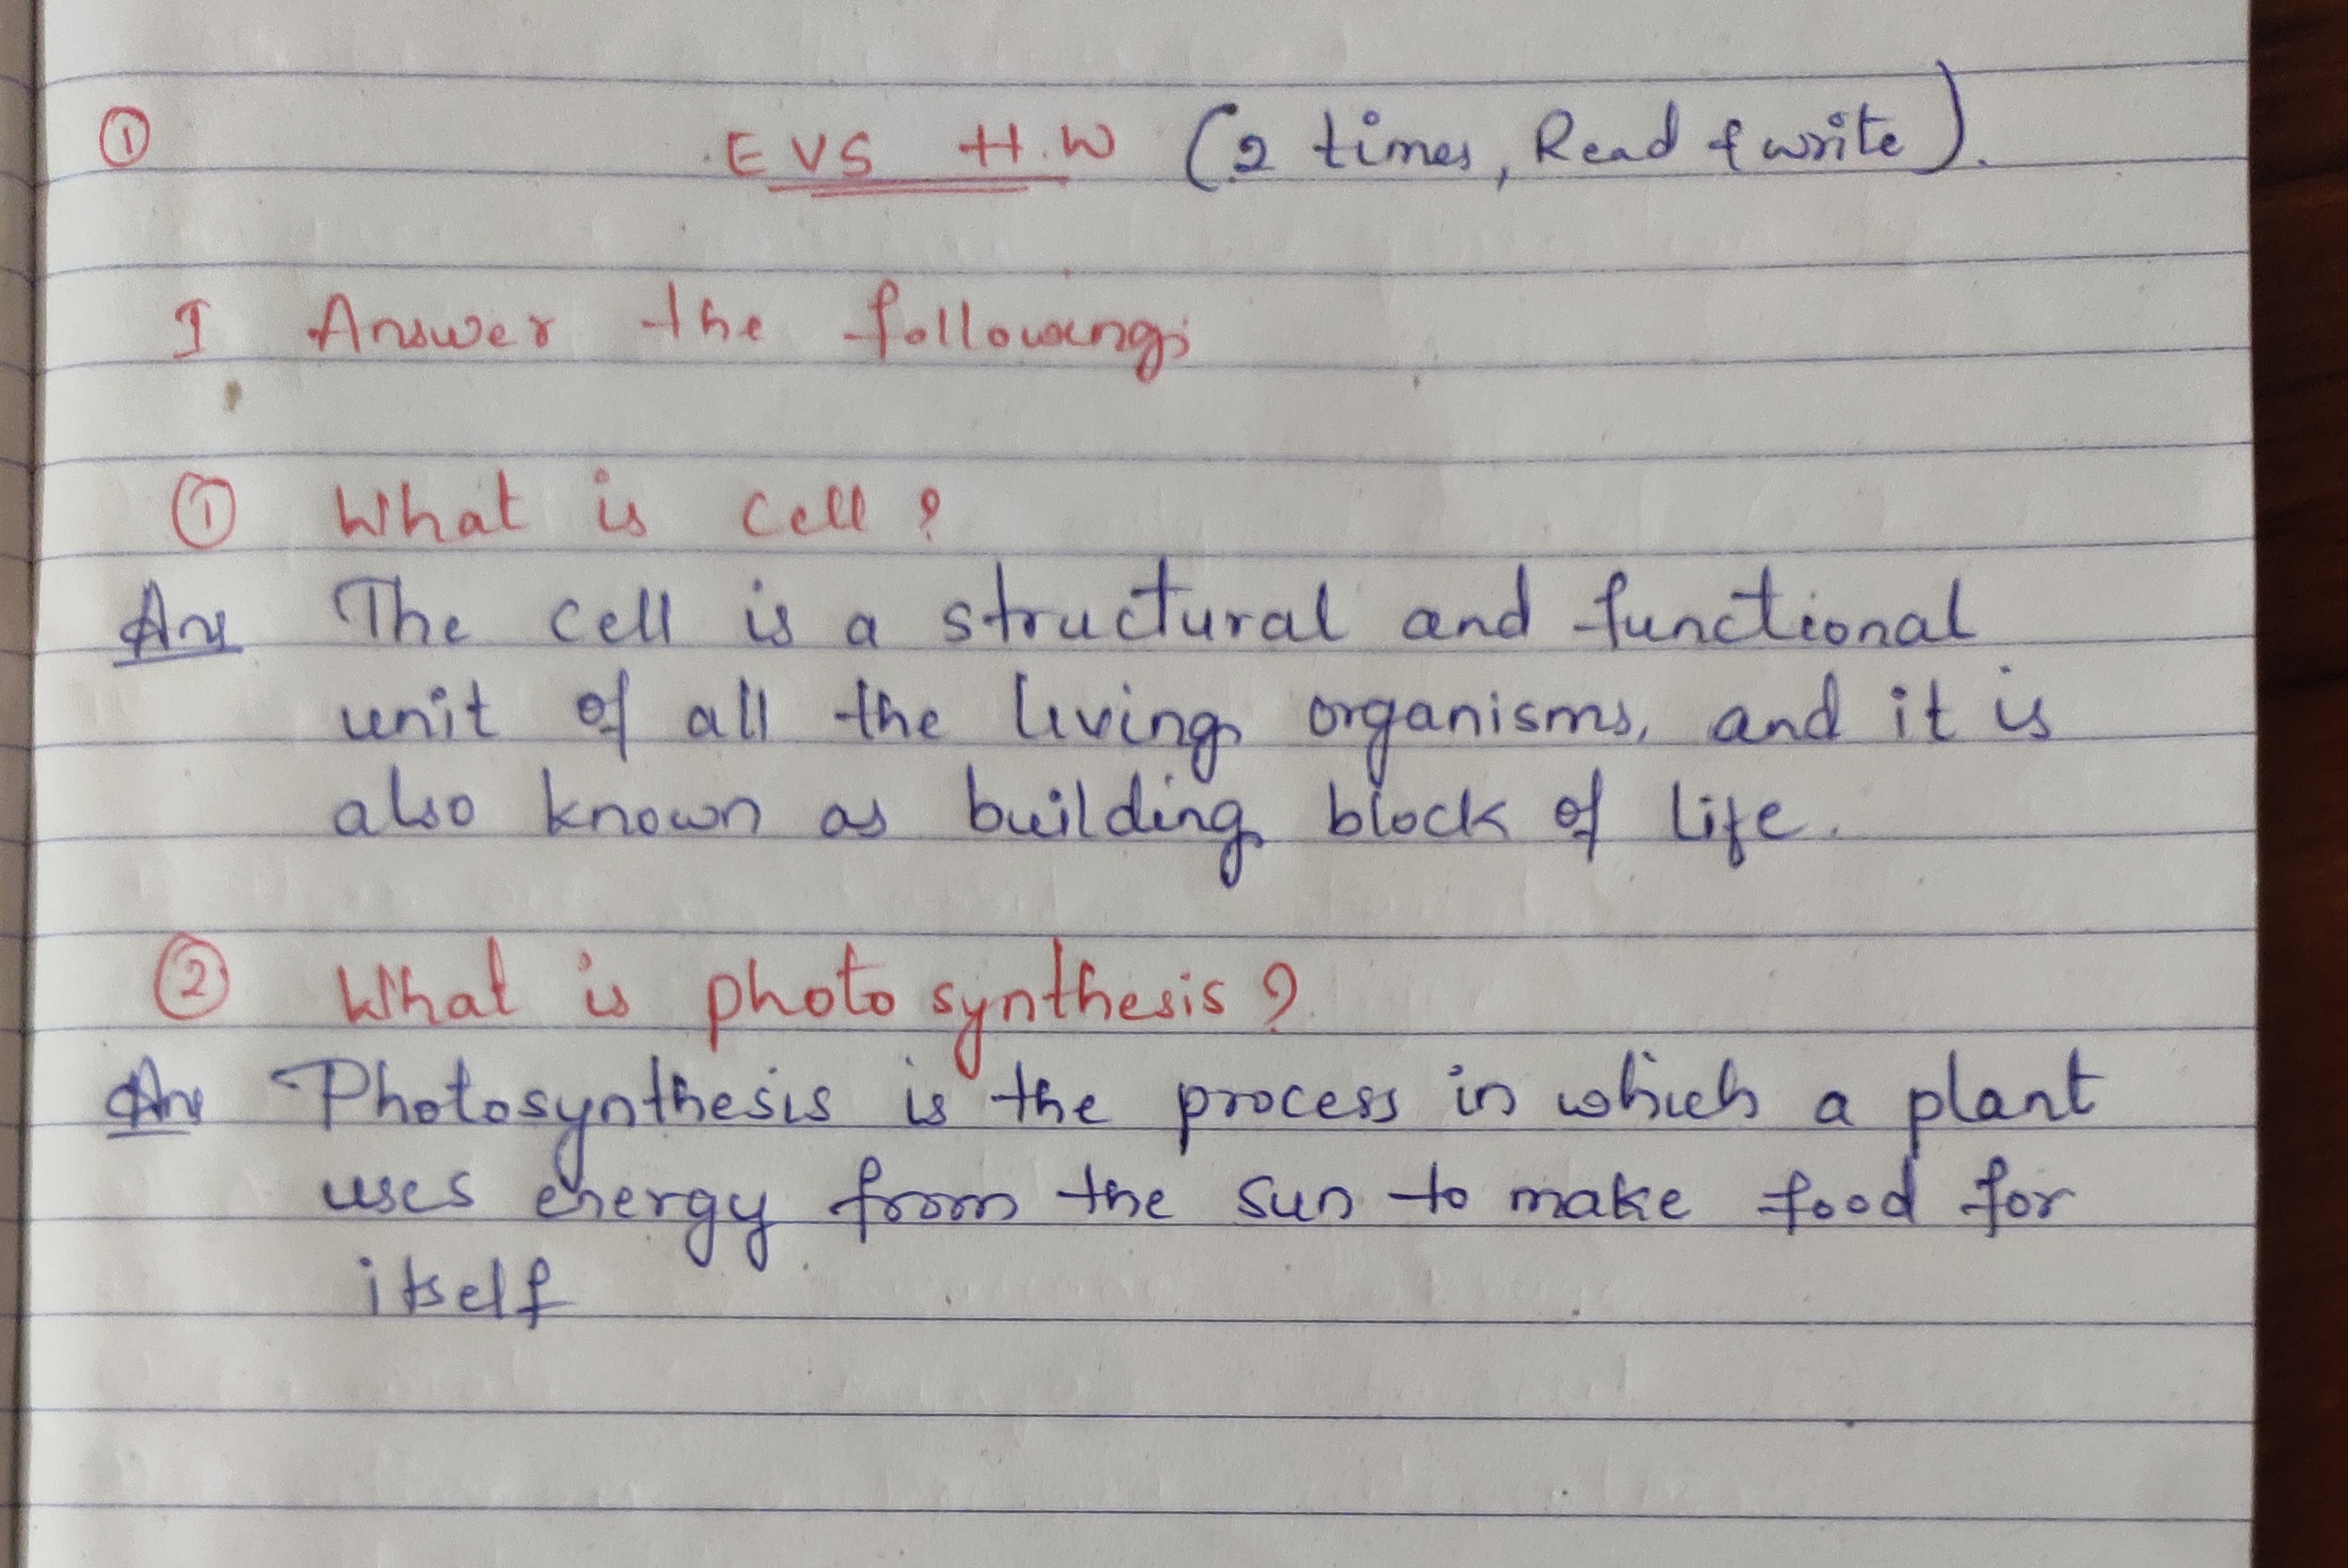 ① EVS H.W (2 times, Read & write).
I Answer the following;
① What is cell?
Ans The cell is a structural and functional
unit of all the living organisms, and it is
also known as building block of life.
② What is photo synthesis?
Ans Photosynthesis is the process in which a plant
uses energy from the sun to make food for
itself